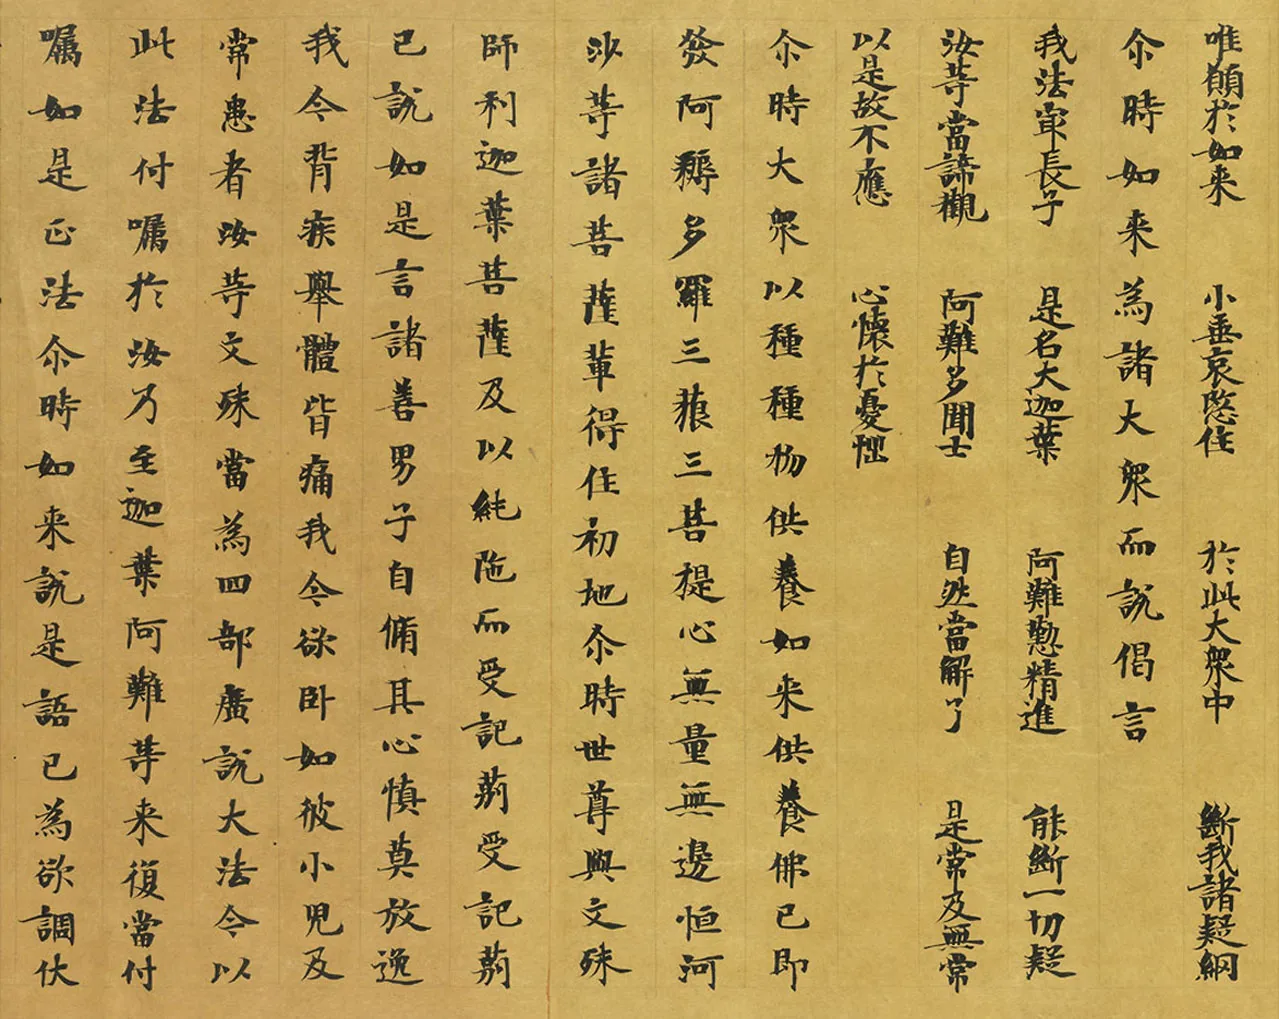 唯願於如来 小垂哀愍住 於此大眾中 斷我諸疑網
尒時如来為諸大眾而說偈言
我法冣長子 是名大迦葉 阿難懃精進 能斷一切疑
汝等當諦觀 阿難多聞士 自然當解了 是常及無常
以是故不應 心懷於憂惱
尒時大眾以種種物供養如来供養佛已即
發阿耨多羅三藐三菩提心無量無邊恒河
沙等諸菩薩輩得住初地尒時世尊與文殊
師利迦葉菩薩及以純陁而受記莂受記莂
已說如是言諸善男子自脩其心慎莫放逸
我今背疾舉體皆痛我今欲卧如彼小兒及
常患者汝等文殊當為四部廣說大法今以
此法付囑於汝乃至迦葉阿難等来復當付
囑如是正法尒時如来說是語已為欲調伏